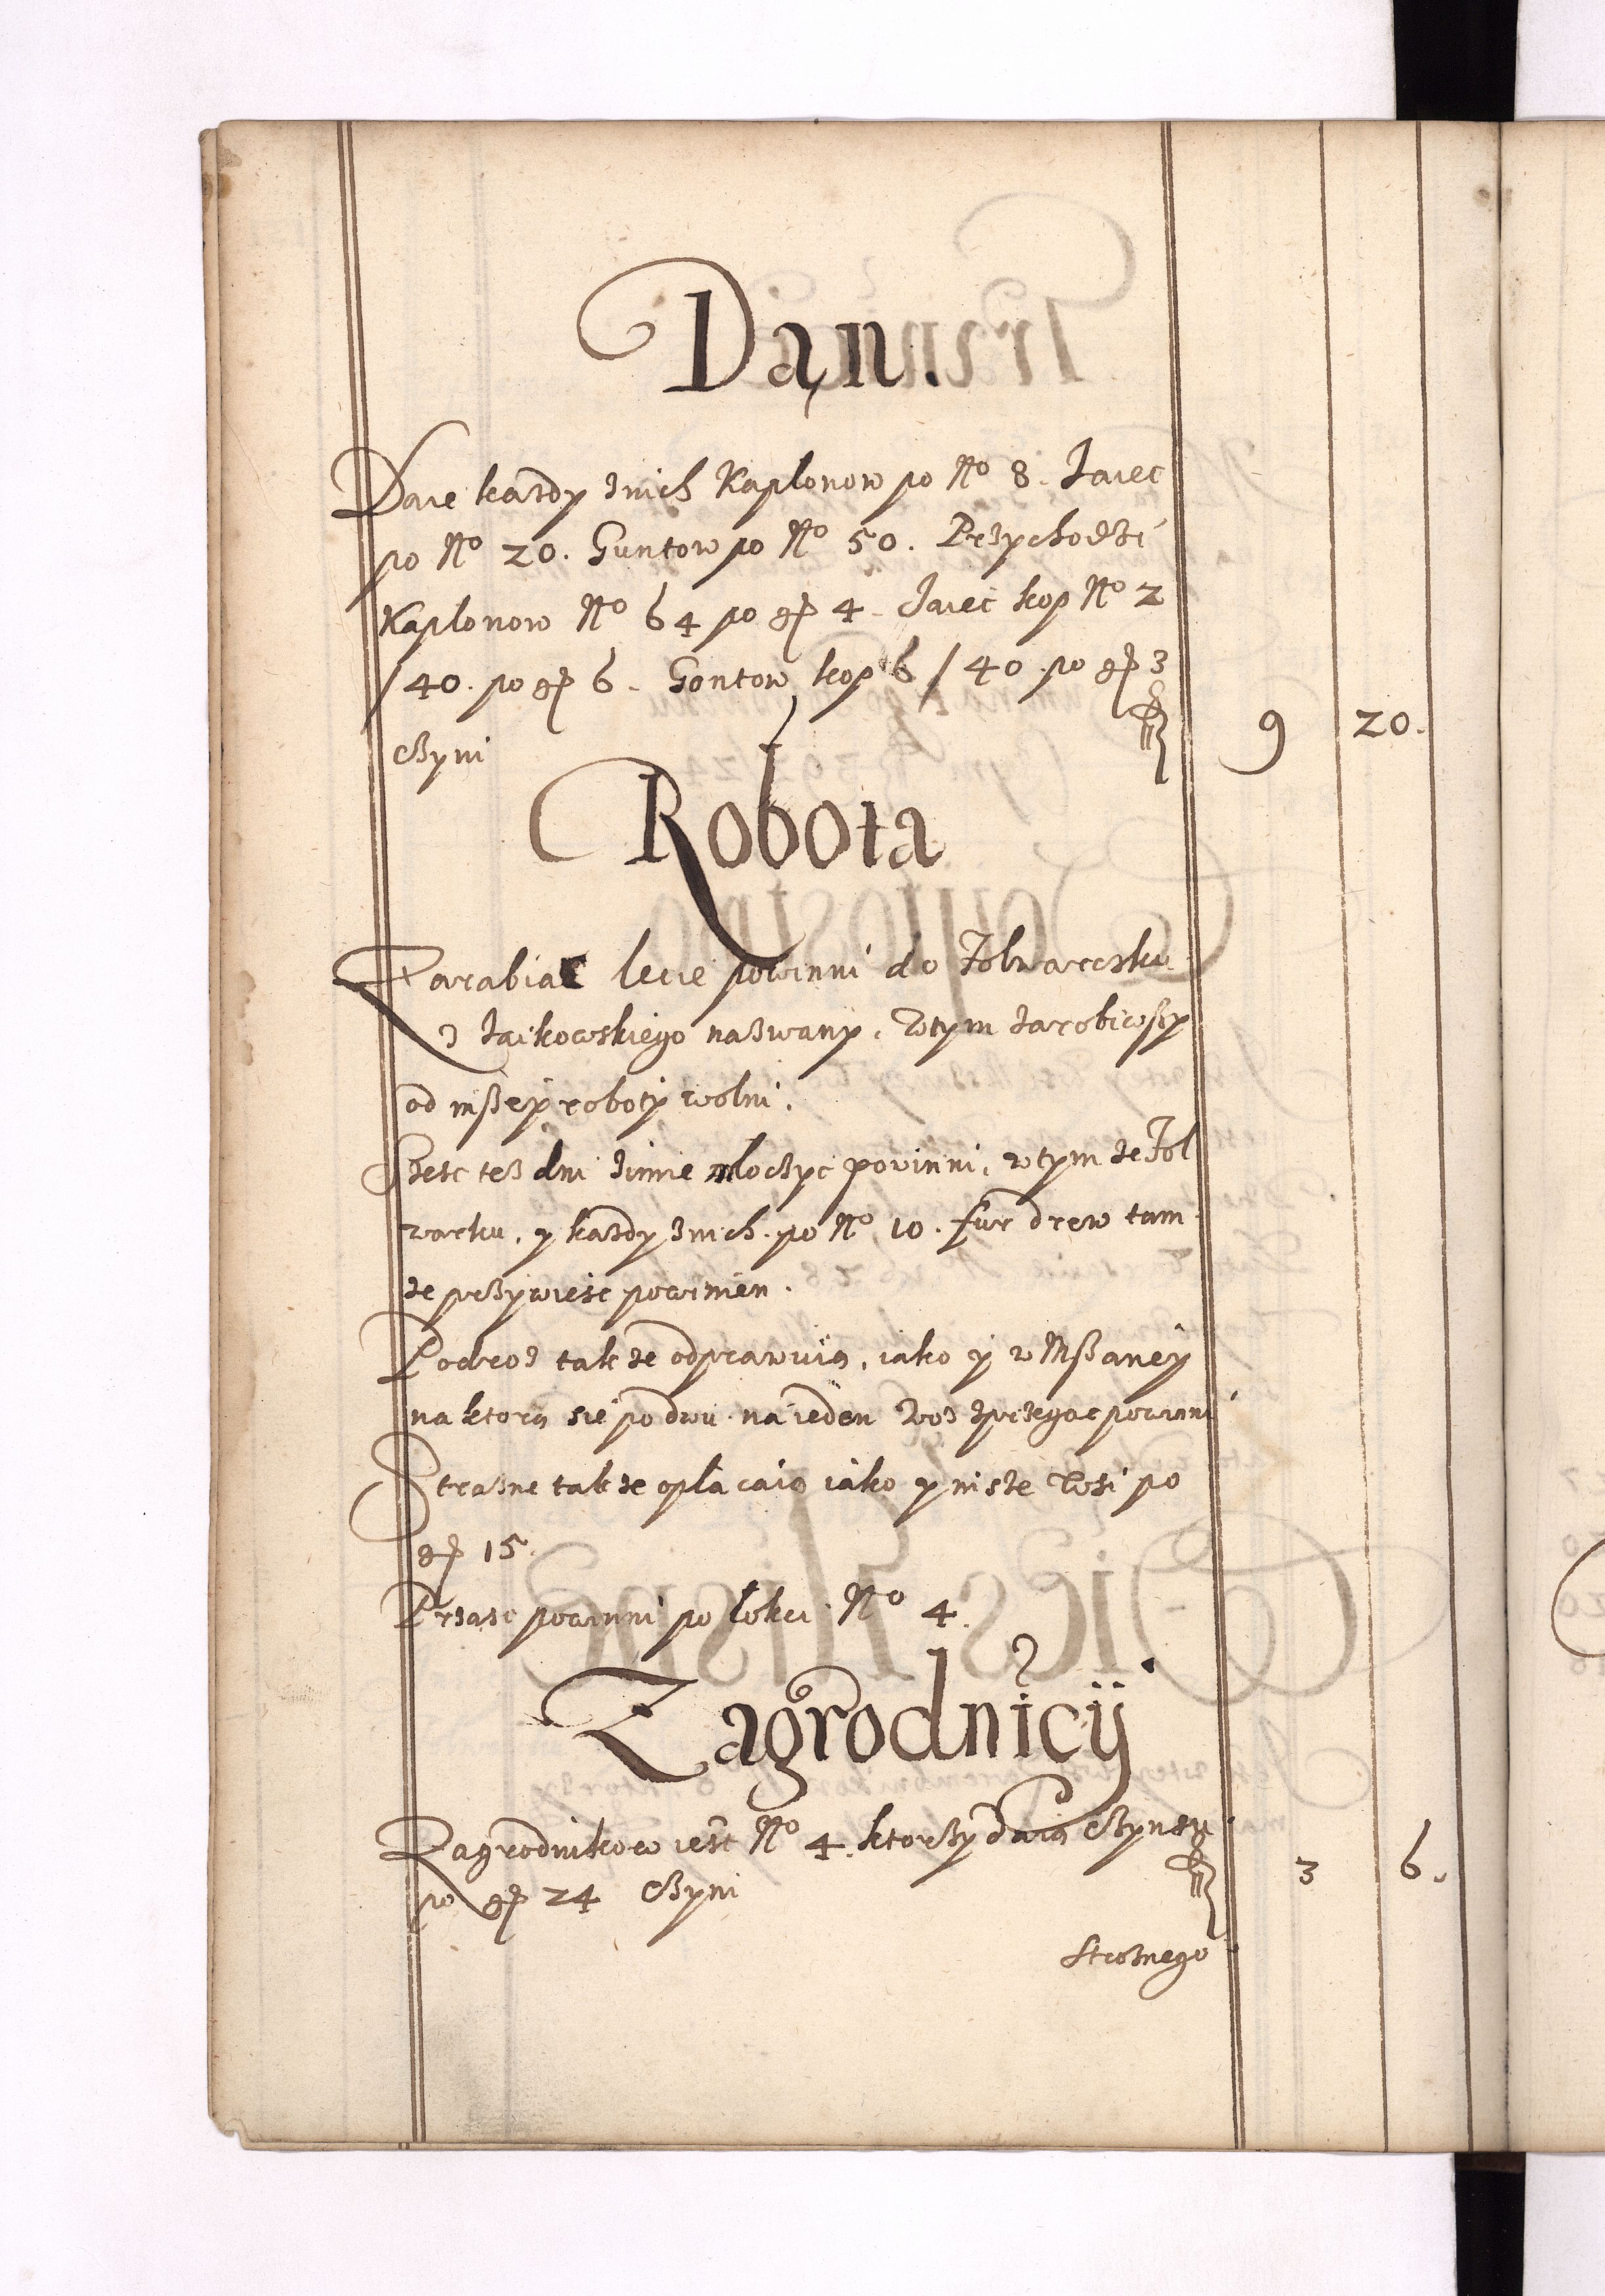 Dan.
Daie kazdy z nich Kaplonow po No 8. Jaiec
po No 20. Guntow po No 50. Przychodzi
Kaplonow No 64 po gr 4. Jaiec kop No 2
/40. po gr 6. Gontow kop 6/40. po gr 3
czyni 9 20.
Robota
Zarabiac lecie powinni do Folwarczku
z Jaikowskiego nazwany. W tym zarobiwszy
od inszey roboty wolni.
Szesc tesz dni zimie mloczyc powinni, w tym ze Fol
warku, y kazdy z nich po No 10. fur drew tam
ze przywiesc powinien.
Podroz takze odprawuią, iako y w Mszaney
na ktorą sie po dwu na ieden Woz zprzegac powinni
Strazne takze oplacaią iako y insze Wsi po
gr 15.
Prząsc powinni po lokci No 4.
Zagrodnicy
Zagrodnikow iest No 4. ktorzy daią czynszu
po gr 24 czyni 3 6.
Stroznego